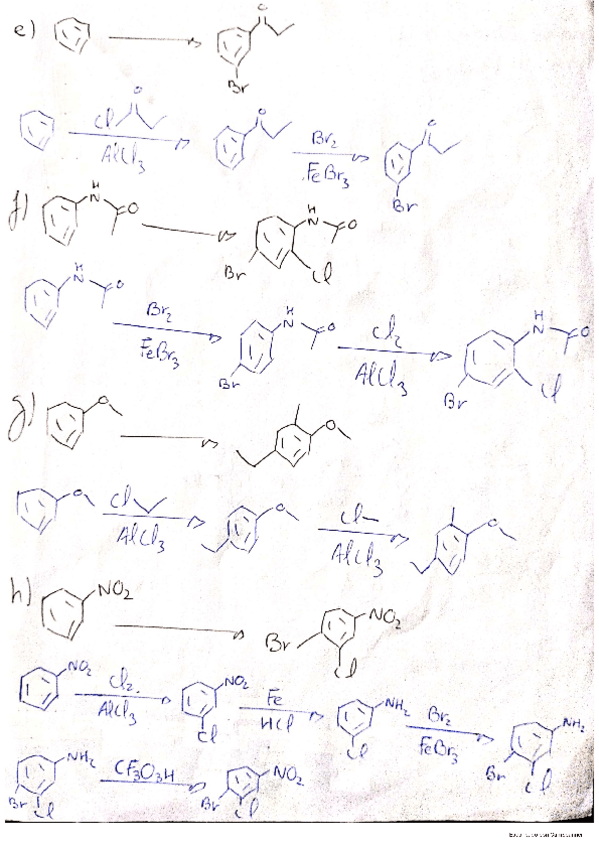 e)
O
Br
O
Cl
AlCl3
O
Br2
FeBr3
O
Br
f)
H
N
O
H
N
O
Br
Cl
H
N
O
Br2
FeBr3
H
N
O
Br
Cl2
AlCl3
H
N
O
Br
Cl
g)
O
O
O
Cl
AlCl3
O
Cl
AlCl3
O
h)
NO2
NO2
Br
Cl
NO2
Cl2
AlCl3
NO2
Cl
Fe
HCl
NH2
Cl
Br2
FeBr3
NH2
Br
Cl
NH2
Br
Cl
CF3O3H
NO2
Br
Cl